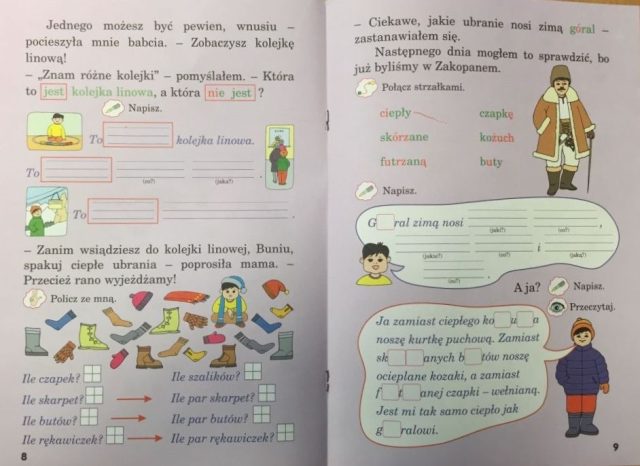 Jednego możesz być pewien, wnusiu –
pocieszyła mnie babcia. – Zobaczysz kolejkę
linową!
– „Znam różne kolejki” – pomyślałem. – Która
to jest kolejka linowa, a która nie jest ?
Napisz.
To kolejka linowa.
To
(co?) (jaka?)
To
– Zanim wsiądziesz do kolejki linowej, Buniu,
spakuj ciepłe ubrania – poprosiła mama. –
Przecież rano wyjeżdżamy!
Policz ze mną.
Ile czapek? Ile szalików?
Ile skarpet? Ile par skarpet?
Ile butów? Ile par butów?
Ile rękawiczek? Ile par rękawiczek?
8
– Ciekawe, jakie ubranie nosi zimą góral –
zastanawiałem się.
Następnego dnia mogłem to sprawdzić, bo
już byliśmy w Zakopanem.
Połącz strzałkami.
ciepły czapkę
skórzane kożuch
futrzaną buty
Napisz.
G ral zimą nosi ,
(jaki?) (co?)
i
(jakie?) (co?) (jaką?)
.
(co?)
A ja? Napisz.
Przeczytaj.
Ja zamiast ciepłego ko u a
noszę kurtkę puchową. Zamiast
sk anych b tów noszę
ocieplane kozaki, a zamiast
f t anej czapki – wełnianą.
Jest mi tak samo ciepło jak
g ralowi.
9